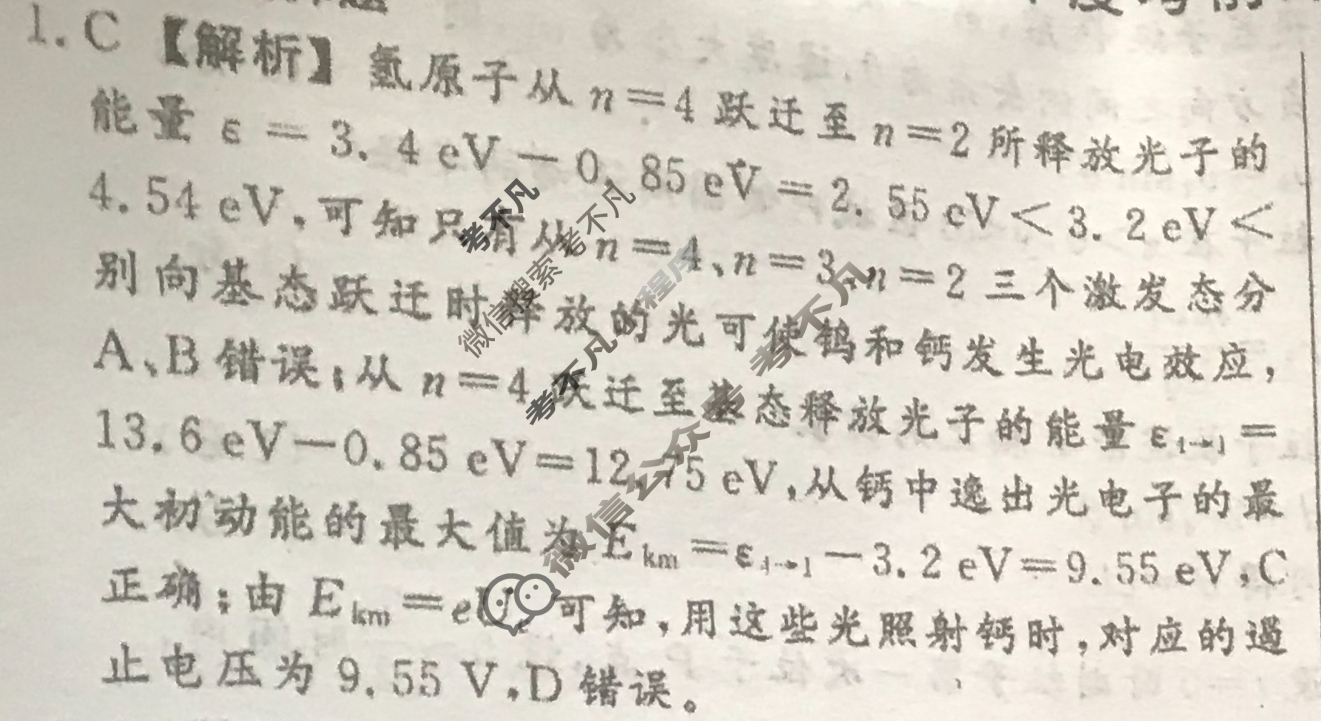 1. C 【解析】 氢原子从 n=4 跃迁至 n=2 所释放光子的
能量 ε = 3. 4 eV — 0. 85 eV = 2. 55 eV < 3. 2 eV <
4. 54 eV,可知只有从 n=4、n=3、n=2 三个激发态分
别向基态跃迁时释放的光可使钨和钙发生光电效应,
A、B 错误;从 n=4 跃迁至基态释放光子的能量 ε4→1=
13. 6 eV—0. 85 eV=12. 75 eV,从钙中逸出光电子的最
大初动能的最大值为 Ekm=ε4→1—3. 2 eV=9. 55 eV,C
正确;由 Ekm=eUc 可知,用这些光照射钙时,对应的遏
止电压为 9. 55 V,D 错误。
考不凡
微信搜索 考不凡
考不凡 小程序
微信公众号 考不凡